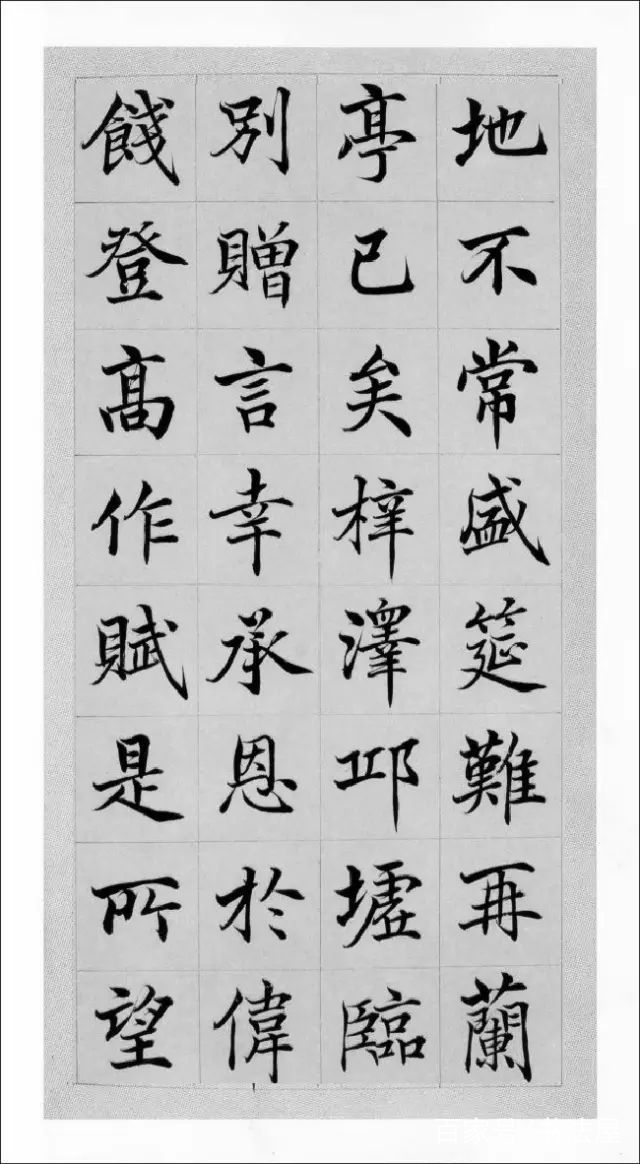 地不常盛筵難再蘭
亭已矣梓澤邱墟臨
別贈言幸承恩於偉
餞登高作賦是所望
百家号/书法屋